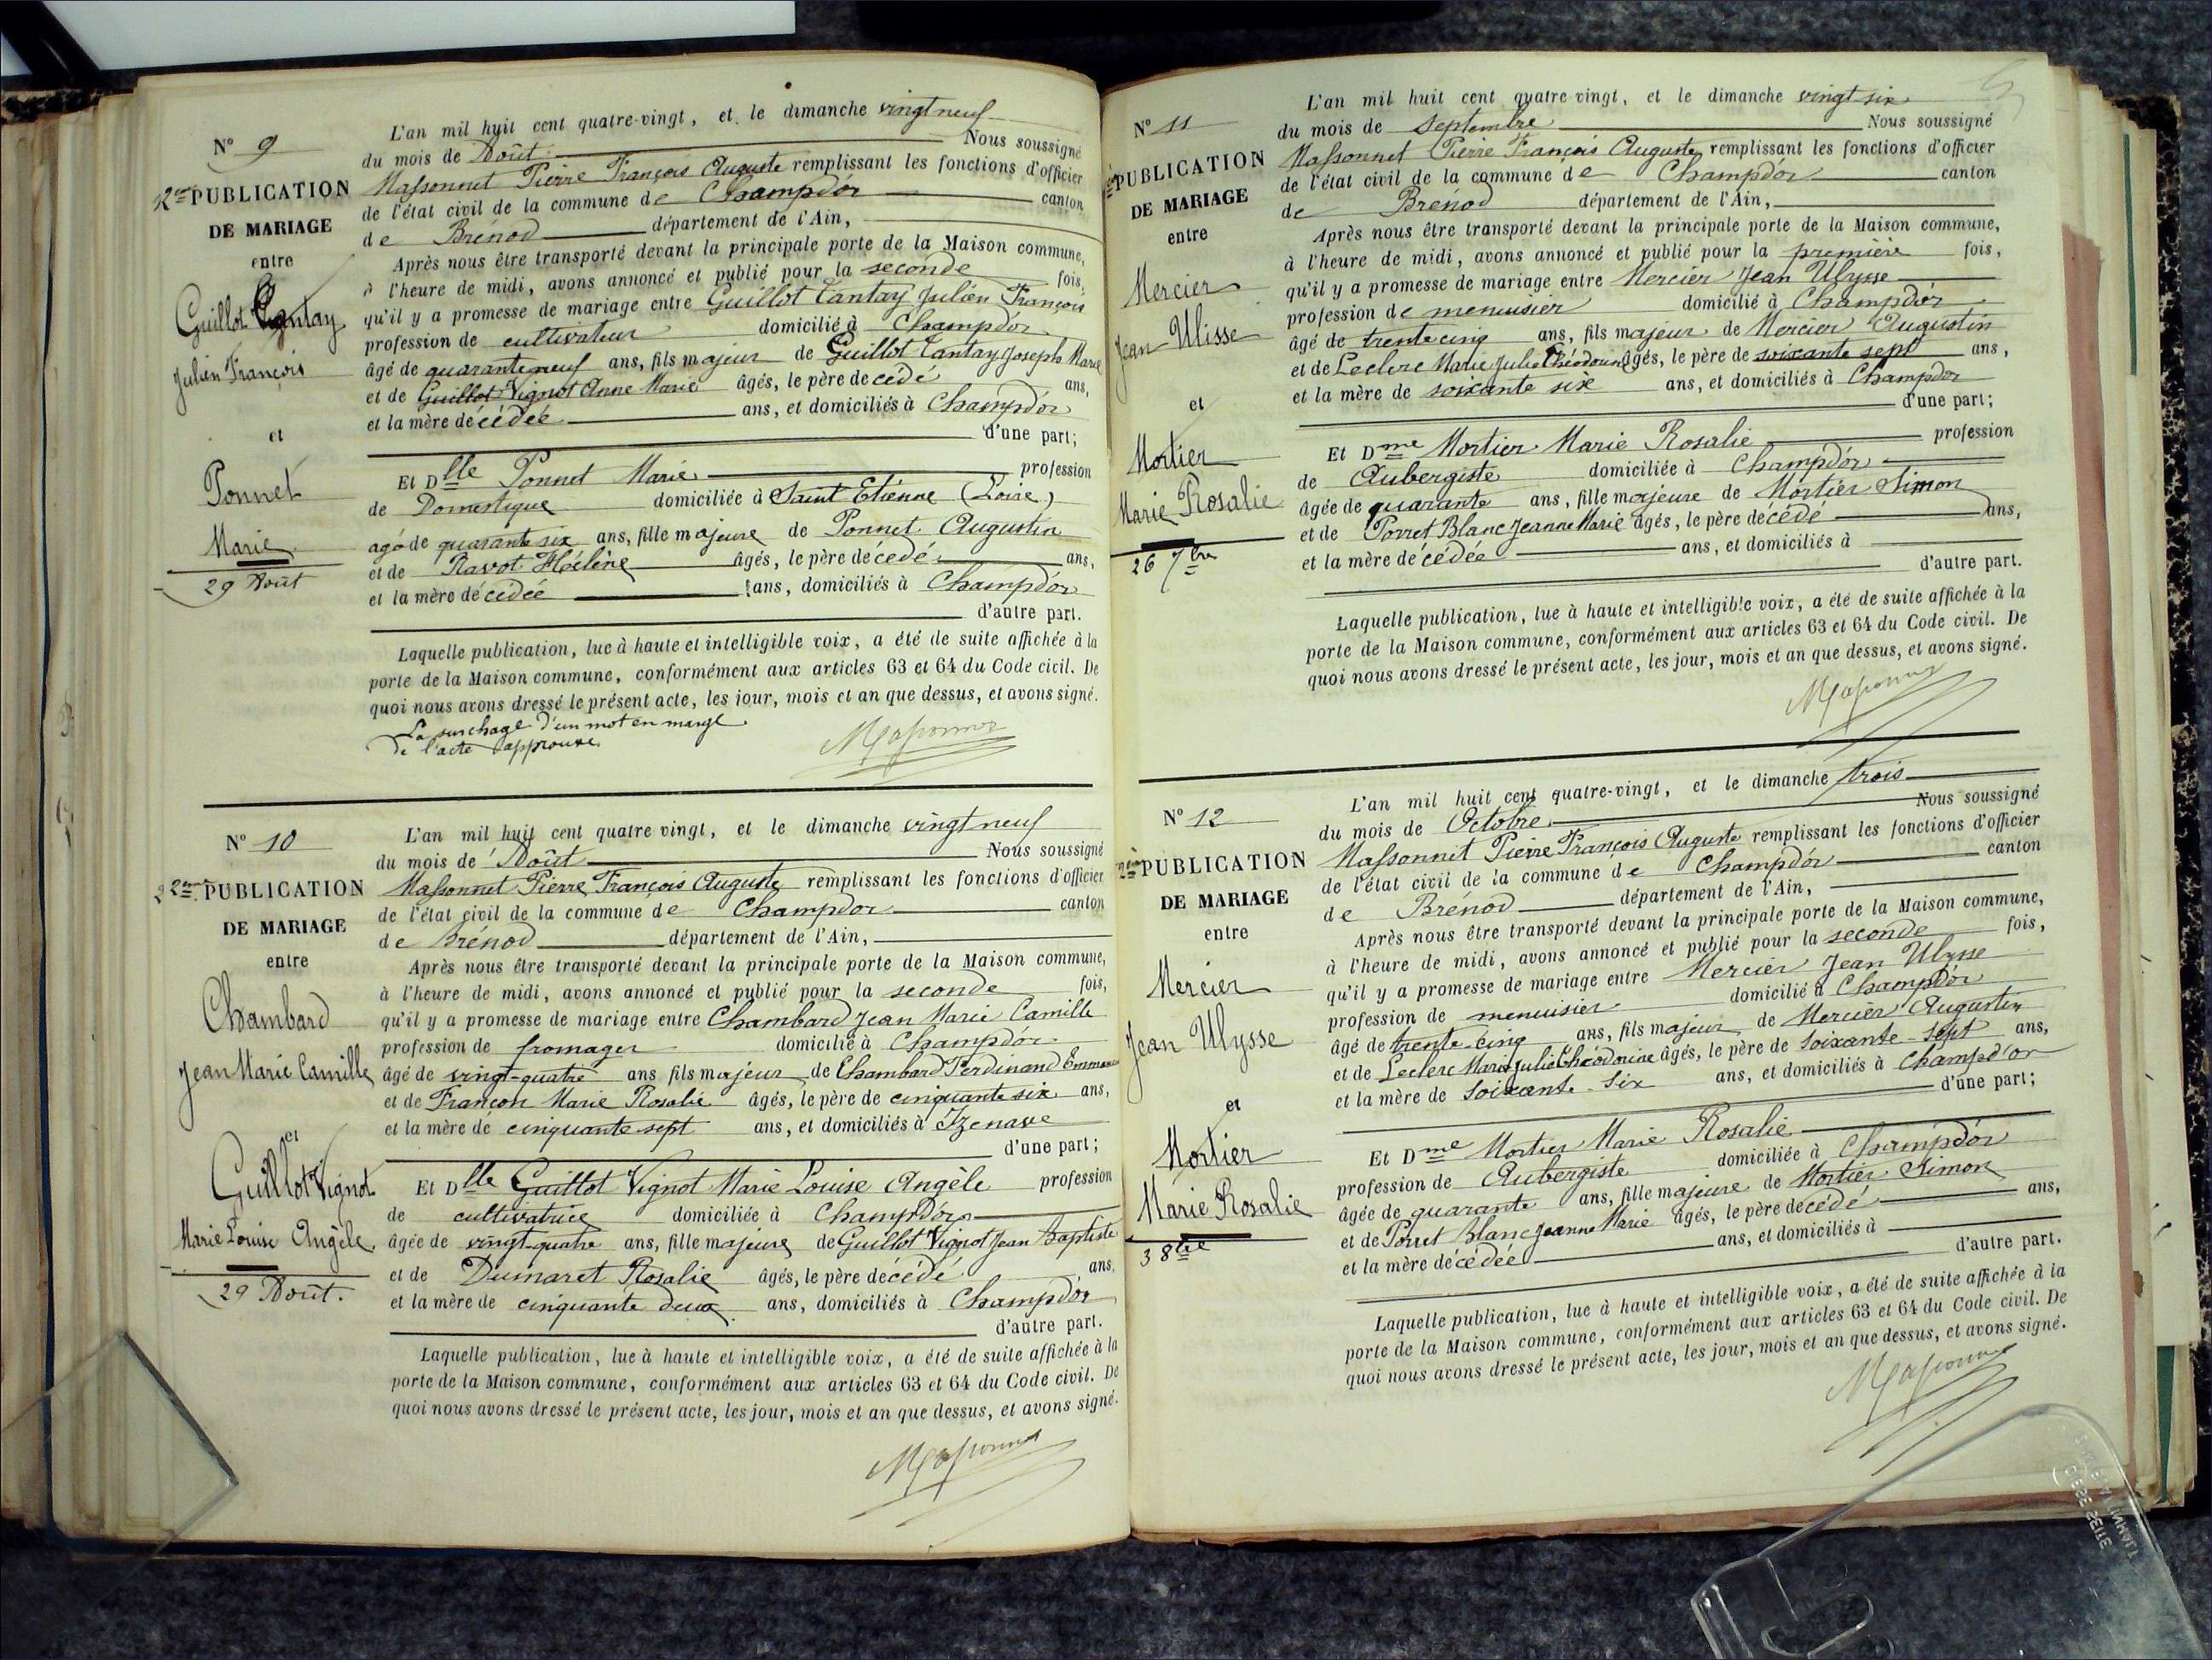 N° 9
2me PUBLICATION
DE MARIAGE
entre
Guillot Tantay
Julien François
et
Ponnet
Marie
29 Août
L'an mil huit cent quatre-vingt, et le dimanche vingt neuf
du mois de Août Nous soussigné
Massonnet Pierre François Auguste remplissant les fonctions d'officier
de l'état civil de la commune de Champdor canton
de Brénod département de l'Ain,
Après nous être transporté devant la principale porte de la Maison commune,
à l'heure de midi, avons annoncé et publié pour la seconde fois,
qu'il y a promesse de mariage entre Guillot Tantay Julien François
profession de cultivateur domicilié à Champdor
âgé de quarante neuf ans, fils majeur de Guillot Tantay Joseph Marie
et de Guillot Vignot Anne Marie âgés, le père decédé ans,
et la mère décédée ans, et domiciliés à Champdor
d'une part;
Et Dlle Ponnet Marie profession
de Domestique domiciliée à Saint Etienne (Loire)
agé de quarante six ans, fille majeure de Ponnet Augustin
et de Ravot Hélène âgés, le père decedé ans,
et la mère décédée ans, domiciliés à Champdor
d'autre part.
Laquelle publication, lue à haute et intelligible voix, a été de suite affichée à la
porte de la Maison commune, conformément aux articles 63 et 64 du Code civil. De
quoi nous avons dressé le présent acte, les jour, mois et an que dessus, et avons signé.
La surchage d'un mot en marge
de l'acte approuvé
Massonnet
N° 10
2me PUBLICATION
DE MARIAGE
entre
Chambard
Jean Marie Camille
et
Guillot Vignot
Marie Louise Angèle
29 Août.
L'an mil huit cent quatre vingt, et le dimanche vingt neuf
du mois de Août Nous soussigné
Massonnet Pierre François Auguste remplissant les fonctions d'officier
de l'état civil de la commune de Champdor canton
de Brénod département de l'Ain,
Après nous être transporté devant la principale porte de la Maison commune,
à l'heure de midi, avons annoncé et publié pour la seconde fois,
qu'il y a promesse de mariage entre Chambard Jean Marie Camille
profession de fromager domicilié à Champdor
âgé de vingt-quatre ans fils majeur de Chambard Ferdinand
et de Françon Marie Rosalie âgés, le père de cinquante six ans,
et la mère de cinquante sept ans, et domiciliés à Izenave
d'une part;
Et Dlle Guillot Vignot Marie Louise Angèle profession
de cultivatrice domiciliée à Champdor
âgée de vingt-quatre ans, fille majeure de Guillot Vignot Jean Baptiste
et de Dumaret Rosalie âgés, le père décédé ans,
et la mère de cinquante deux ans, domiciliés à Champdor
d'autre part.
Laquelle publication, lue à haute et intelligible voix, a été de suite affichée à la
porte de la Maison commune, conformément aux articles 63 et 64 du Code civil. De
quoi nous avons dressé le présent acte, les jour, mois et an que dessus, et avons signé.
Massonnet
N° 11
PUBLICATION
DE MARIAGE
entre
Mercier
Jean Ulisse
et
Mortier
Marie Rosalie
26 7bre
L'an mil huit cent quatre vingt, et le dimanche vingt-six
du mois de Septembre Nous soussigné
Massonnet Pierre François Auguste remplissant les fonctions d'officier
de l'état civil de la commune de Champdor canton
de Brénod département de l'Ain,
Après nous être transporté devant la principale porte de la Maison commune,
à l'heure de midi, avons annoncé et publié pour la première fois,
qu'il y a promesse de mariage entre Mercier Jean Ulysse
profession de menuisier domicilié à Champdor
âgé de trente cinq ans, fils majeur de Mercier Augustin
et de Leclerc Marie Julie Théodorine âgés, le père de soixante sept ans,
et la mère de soixante six ans, et domiciliés à Champdor
d'une part;
Et Dme Mortier Marie Rosalie profession
de Aubergiste domiciliée à Champdor
âgée de quarante ans, fille majeure de Mortier Simon
et de Porret Blanc Jeanne Marie âgés, le père décédé ans,
et la mère décédée ans, et domiciliés à
d'autre part.
Laquelle publication, lue à haute et intelligible voix, a été de suite affichée à la
porte de la Maison commune, conformément aux articles 63 et 64 du Code civil. De
quoi nous avons dressé le présent acte, les jour, mois et an que dessus, et avons signé.
Massonnet
N° 12
2me PUBLICATION
DE MARIAGE
entre
Mercier
Jean Ulysse
et
Mortier
Marie Rosalie
3 8bre
L'an mil huit cent quatre-vingt, et le dimanche trois
du mois de Octobre Nous soussigné
Massonnet Pierre François Auguste remplissant les fonctions d'officier
de l'état civil de la commune de Champdor canton
de Brénod département de l'Ain,
Après nous être transporté devant la principale porte de la Maison commune,
à l'heure de midi, avons annoncé et publié pour la seconde fois,
qu'il y a promesse de mariage entre Mercier Jean Ulysse
profession de menuisier domicilié à Champdor
âgé de trente-cinq ans, fils majeur de Mercier Augustin
et de Leclerc Marie Julie Théodorine âgés, le père de soixante-sept ans,
et la mère de soixante-six ans, et domiciliés à Champd'or
d'une part;
Et Dme Mortier Marie Rosalie
profession de Aubergiste domiciliée à Champdor
âgée de quarante ans, fille majeure de Mortier Simon
et de Porret Blanc Jeanne Marie âgés, le père decédé ans,
et la mère décédée ans, et domiciliés à
d'autre part.
Laquelle publication, lue à haute et intelligible voix, a été de suite affichée à la
porte de la Maison commune, conformément aux articles 63 et 64 du Code civil. De
quoi nous avons dressé le présent acte, les jour, mois et an que dessus, et avons signé.
Massonnet